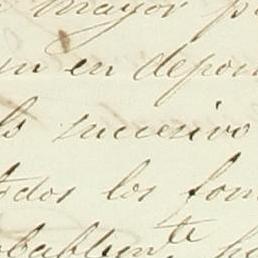 mayor p
un en depos
lo sucesivo
todos los fon
obablemte